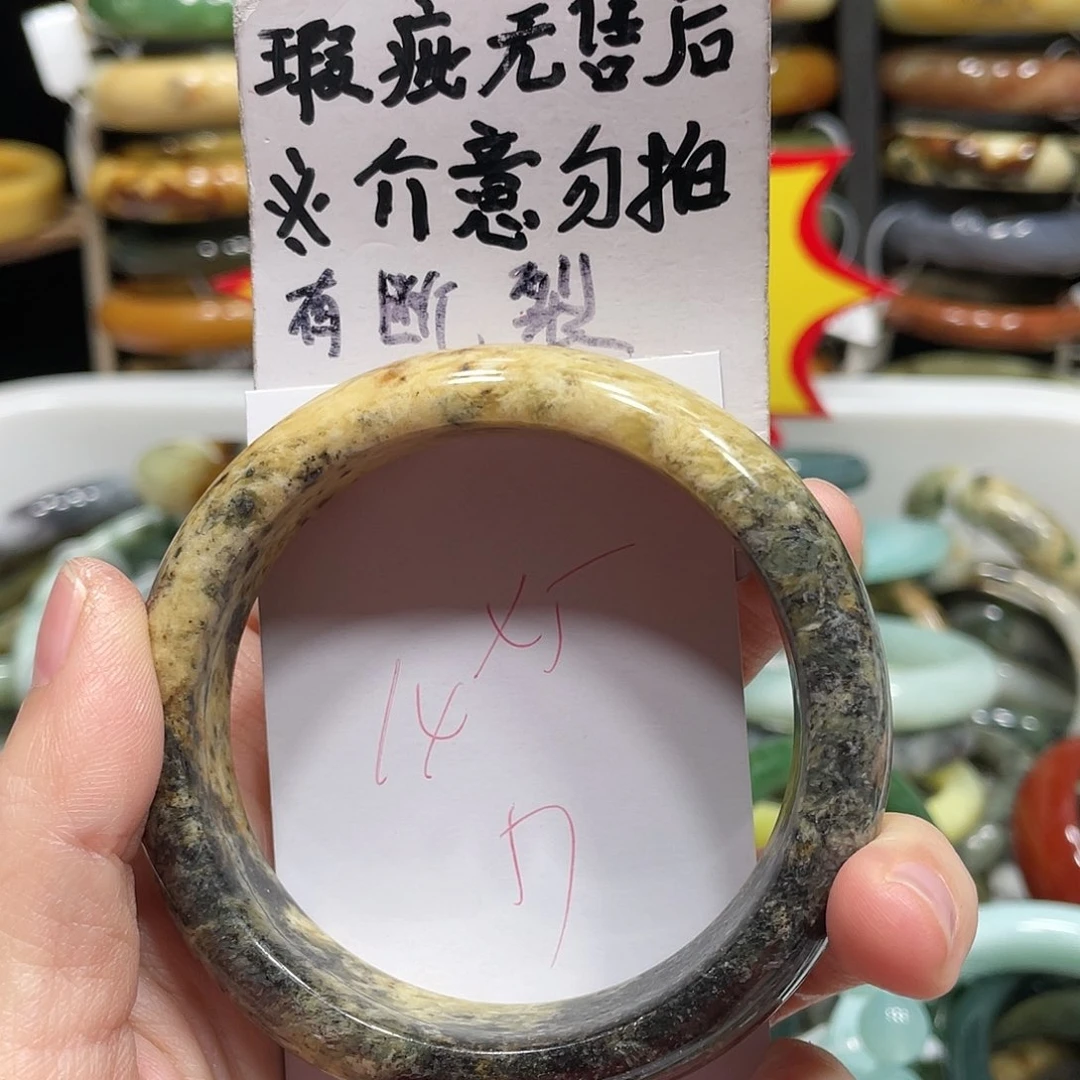 瑕疵无售后
※介意勿拍
有断、裂
14